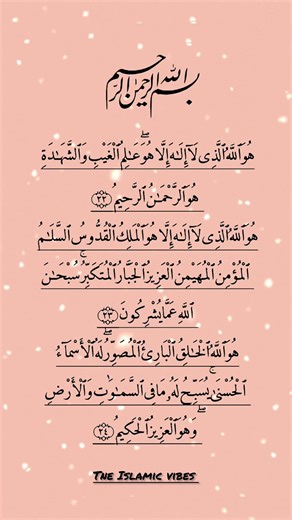 بسم الله الرحمن الرحيم
هُوَ ٱللَّهُ ٱلَّذِى لَآ إِلَـٰهَ إِلَّا هُوَ ۖ عَـٰلِمُ ٱلْغَيْبِ وَٱلشَّهَـٰدَةِ ۖ
هُوَ ٱلرَّحْمَـٰنُ ٱلرَّحِيمُ ٢٢
هُوَ ٱللَّهُ ٱلَّذِى لَآ إِلَـٰهَ إِلَّا هُوَ ٱلْمَلِكُ ٱلْقُدُّوسُ ٱلسَّلَـٰمُ
ٱلْمُؤْمِنُ ٱلْمُهَيْمِنُ ٱلْعَزِيزُ ٱلْجَبَّارُ ٱلْمُتَكَبِّرُ ۚ سُبْحَـٰنَ
ٱللَّهِ عَمَّا يُشْرِكُونَ ٢٣
هُوَ ٱللَّهُ ٱلْخَـٰلِقُ ٱلْبَارِئُ ٱلْمُصَوِّرُ ۖ لَهُ ٱلْأَسْمَآءُ
ٱلْحُسْنَىٰ ۚ يُسَبِّحُ لَهُۥ مَا فِى ٱلسَّمَـٰوَٰتِ وَٱلْأَرْضِ ۖ
وَهُوَ ٱلْعَزِيزُ ٱلْحَكِيمُ ٢٤
The Islamic vibes